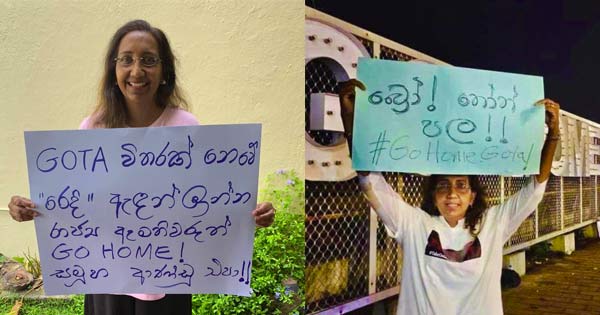 GOTA විතරක් නෙවේ
"රෙදි" ඇඳන් ඉන්න
රාජ්‍ය ඇමතිවරුත්
GO HOME!
සමූහ ආණ්ඩු එපා!!
බ්‍රෝ! තෝත්
පල!!
#GoHomeGota!